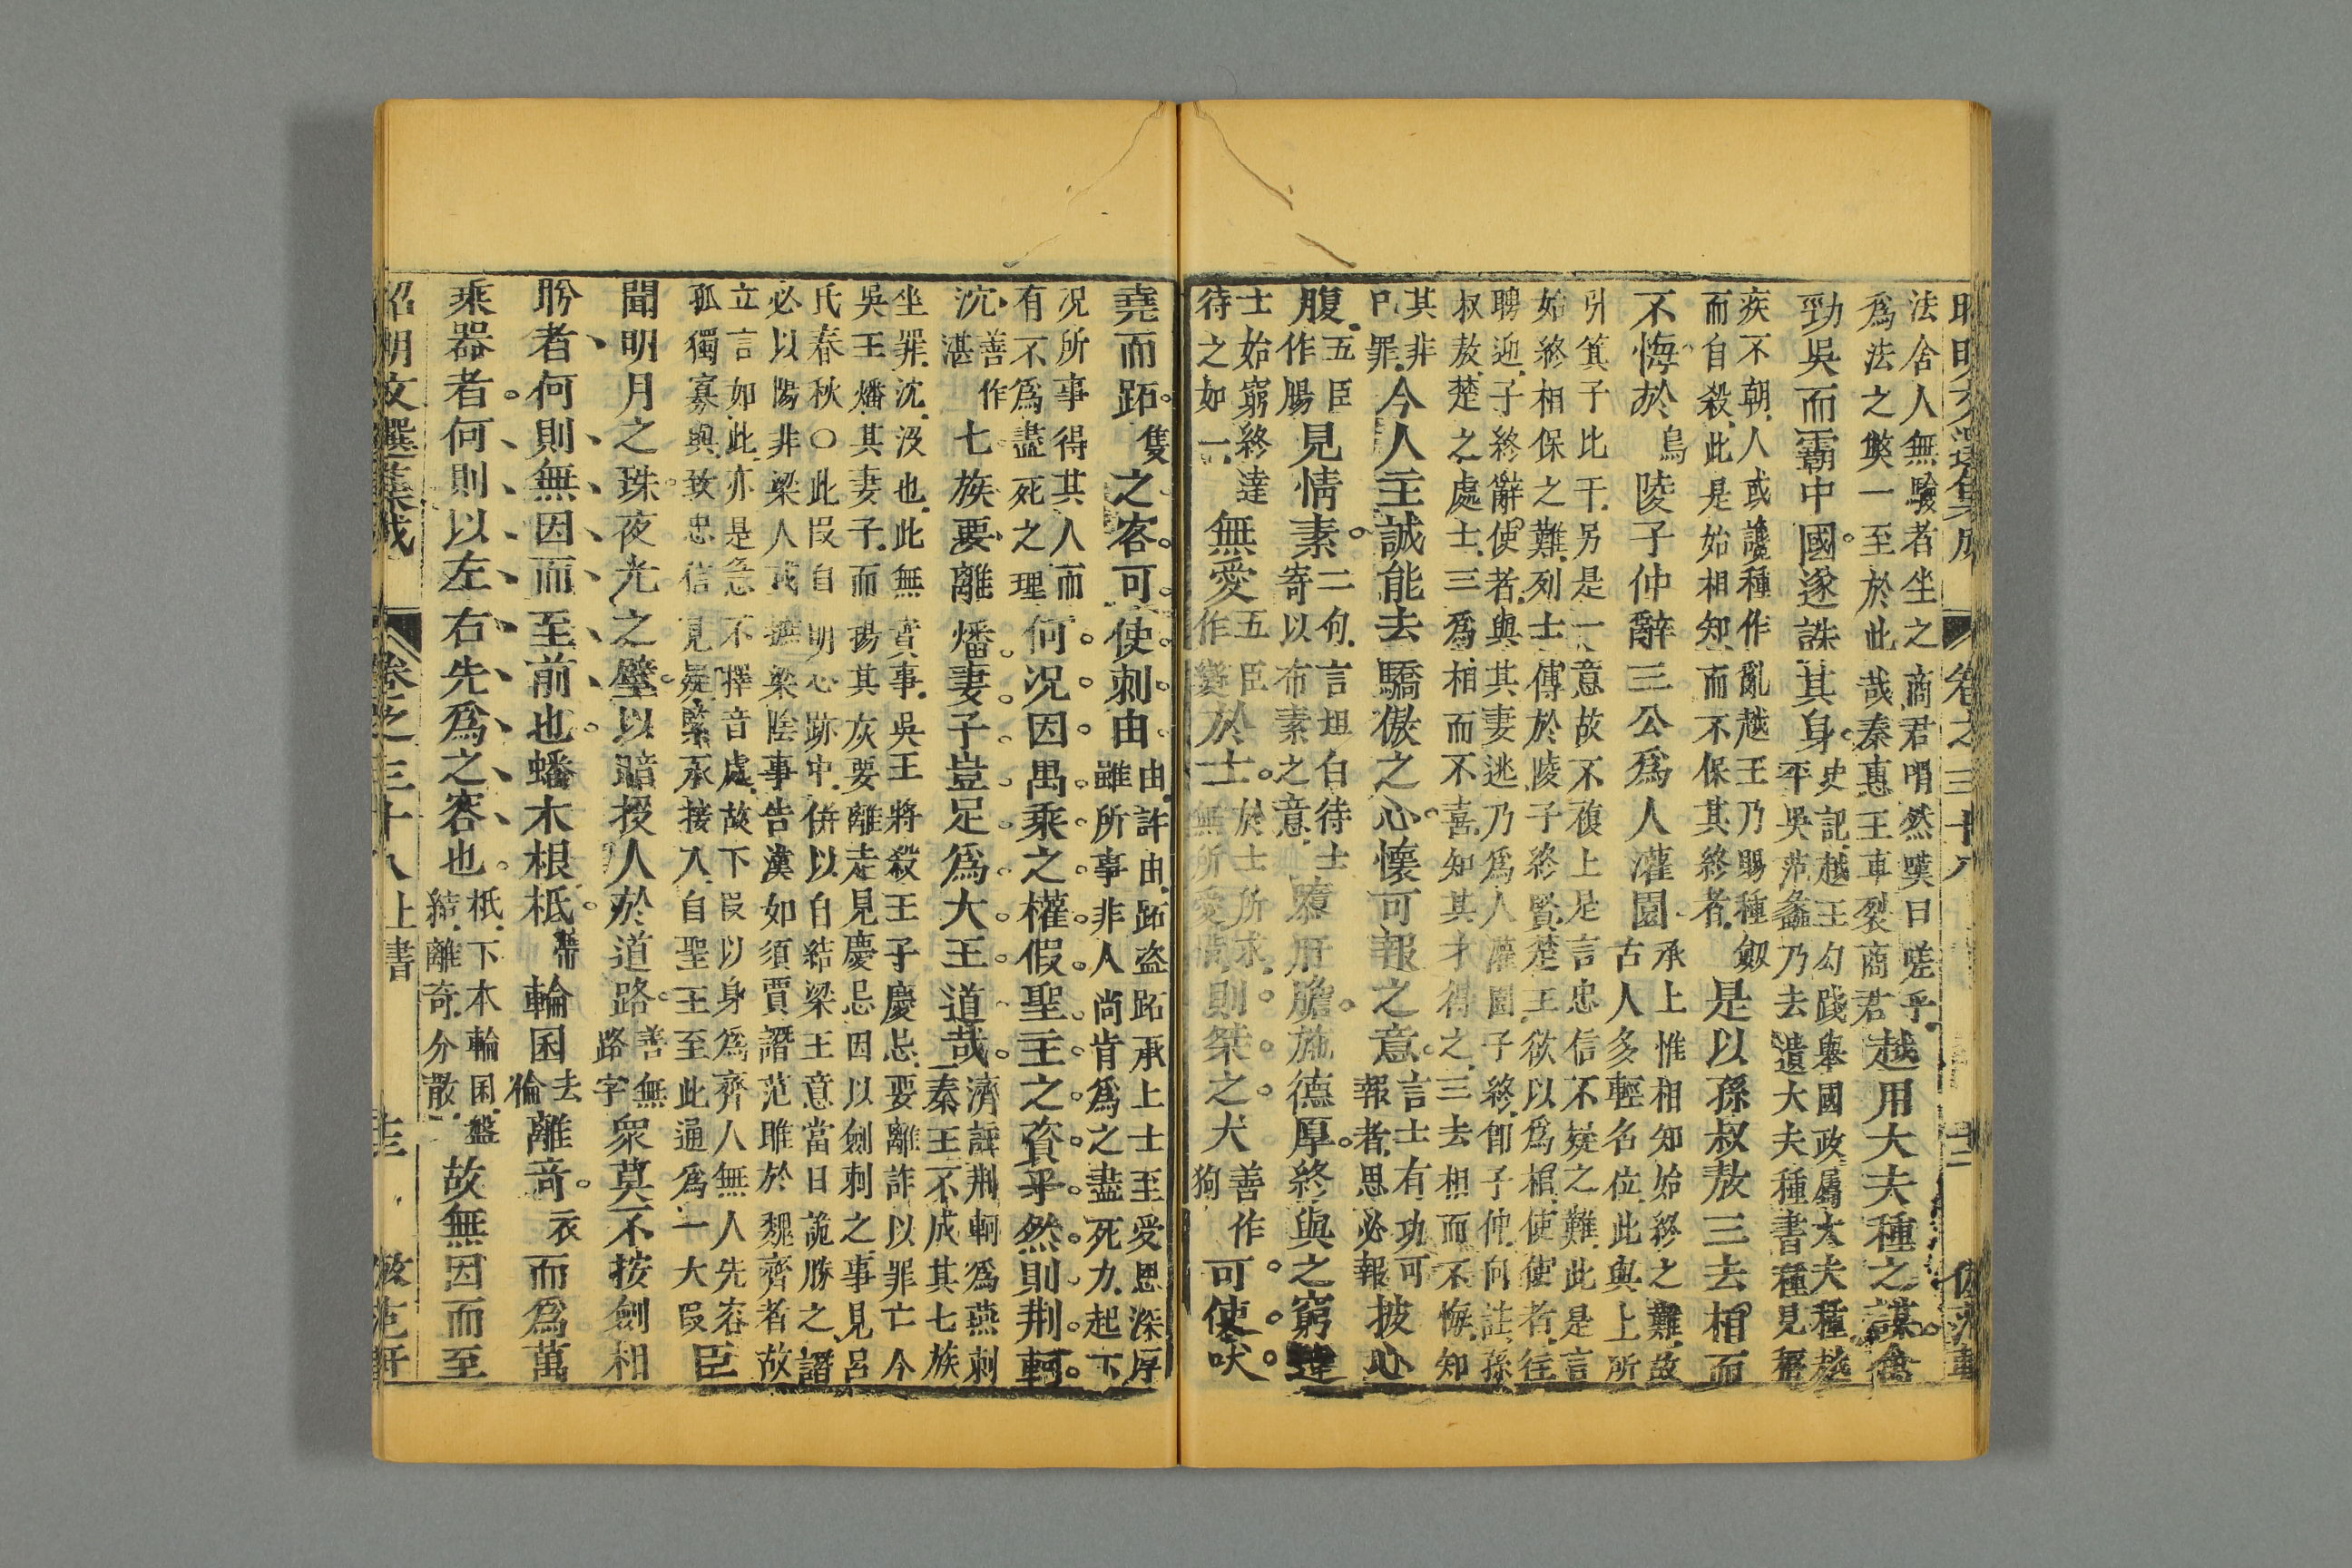 昭明文選集成 卷之三十八
法舍人無驗者坐之商君喟然嘆曰嗟乎
為法之獘一至於此哉秦惠王車裂商君越用大夫種之謀禽
勁吳而霸中國遂誅其身史記越王勾踐舉國政屬大夫種越
平吳范蠡乃去遺大夫種書種見稱
疾不朝人或讒種作亂越王乃賜種劔
而自殺此是始相知而不保其終者是以孫叔敖三去相而
不悔於烏陵子仲辭三公為人灌園承上惟相知始終之難故
古人多輕名位此與上所
引箕子比干另是一意故不複上是言忠信不疑之難此是言
始終相保之難列士傳於陵子終賢楚王欲以為相使使者往
聘迎子終辭使者與其妻逃乃為人灌園子終卽子仲向註孫
叔敖楚之處士三為相而不喜知其才得之三去相而不悔知
其非
己罪今人主誠能去驕傲之心懷可報之意言士有功可
報者思必報披心
腹五臣
作膓見情素二句言坦白待士
寄以布素之意隳肝膽施德厚終與之窮達
士始窮終達
待之如一無愛五臣
作變於士於士所求
無所愛則桀之犬善作
狗可使吠
堯而跖隻之客可使刺由由許由跖盗跖承上士至愛恩深厚
雖所事非人尚肯為之盡死力起下
况所事得其人而
有不為盡死之理何況因萬乘之權假聖主之資乎然則荆軻
沉善作
湛七族要離燔妻子豈足為大王道哉濟註荆軻為燕刺
秦王不成其七族
坐罪沈没也此無實事吳王將殺王子慶忌要離詐以罪亡今
吳王燔其妻子而揚其灰要離走見慶忌因以劍刺之事見呂
氏春秋○此叚自明心跡中併以白結梁王意當日詭勝之譖
必以陽非梁人或摭梁陰事告漢如須賈譖范雎於魏齊者故
立言如此亦是急不擇音處故下叚以身為齊人無人先容
孤獨寡與致忠信見疑緊承接入自聖王至此通為一大叚臣
聞明月之珠夜光之璧以暗投人於道路善無
路字衆莫不按劍相
眄者何則無因而至前也蟠木根柢輪囷去
倫離竒衣而為萬
乘器者何則以左右先為之容也柢下本輪囷盤
結離奇分散故無因而至
昭明文選集成 卷之三十八上書